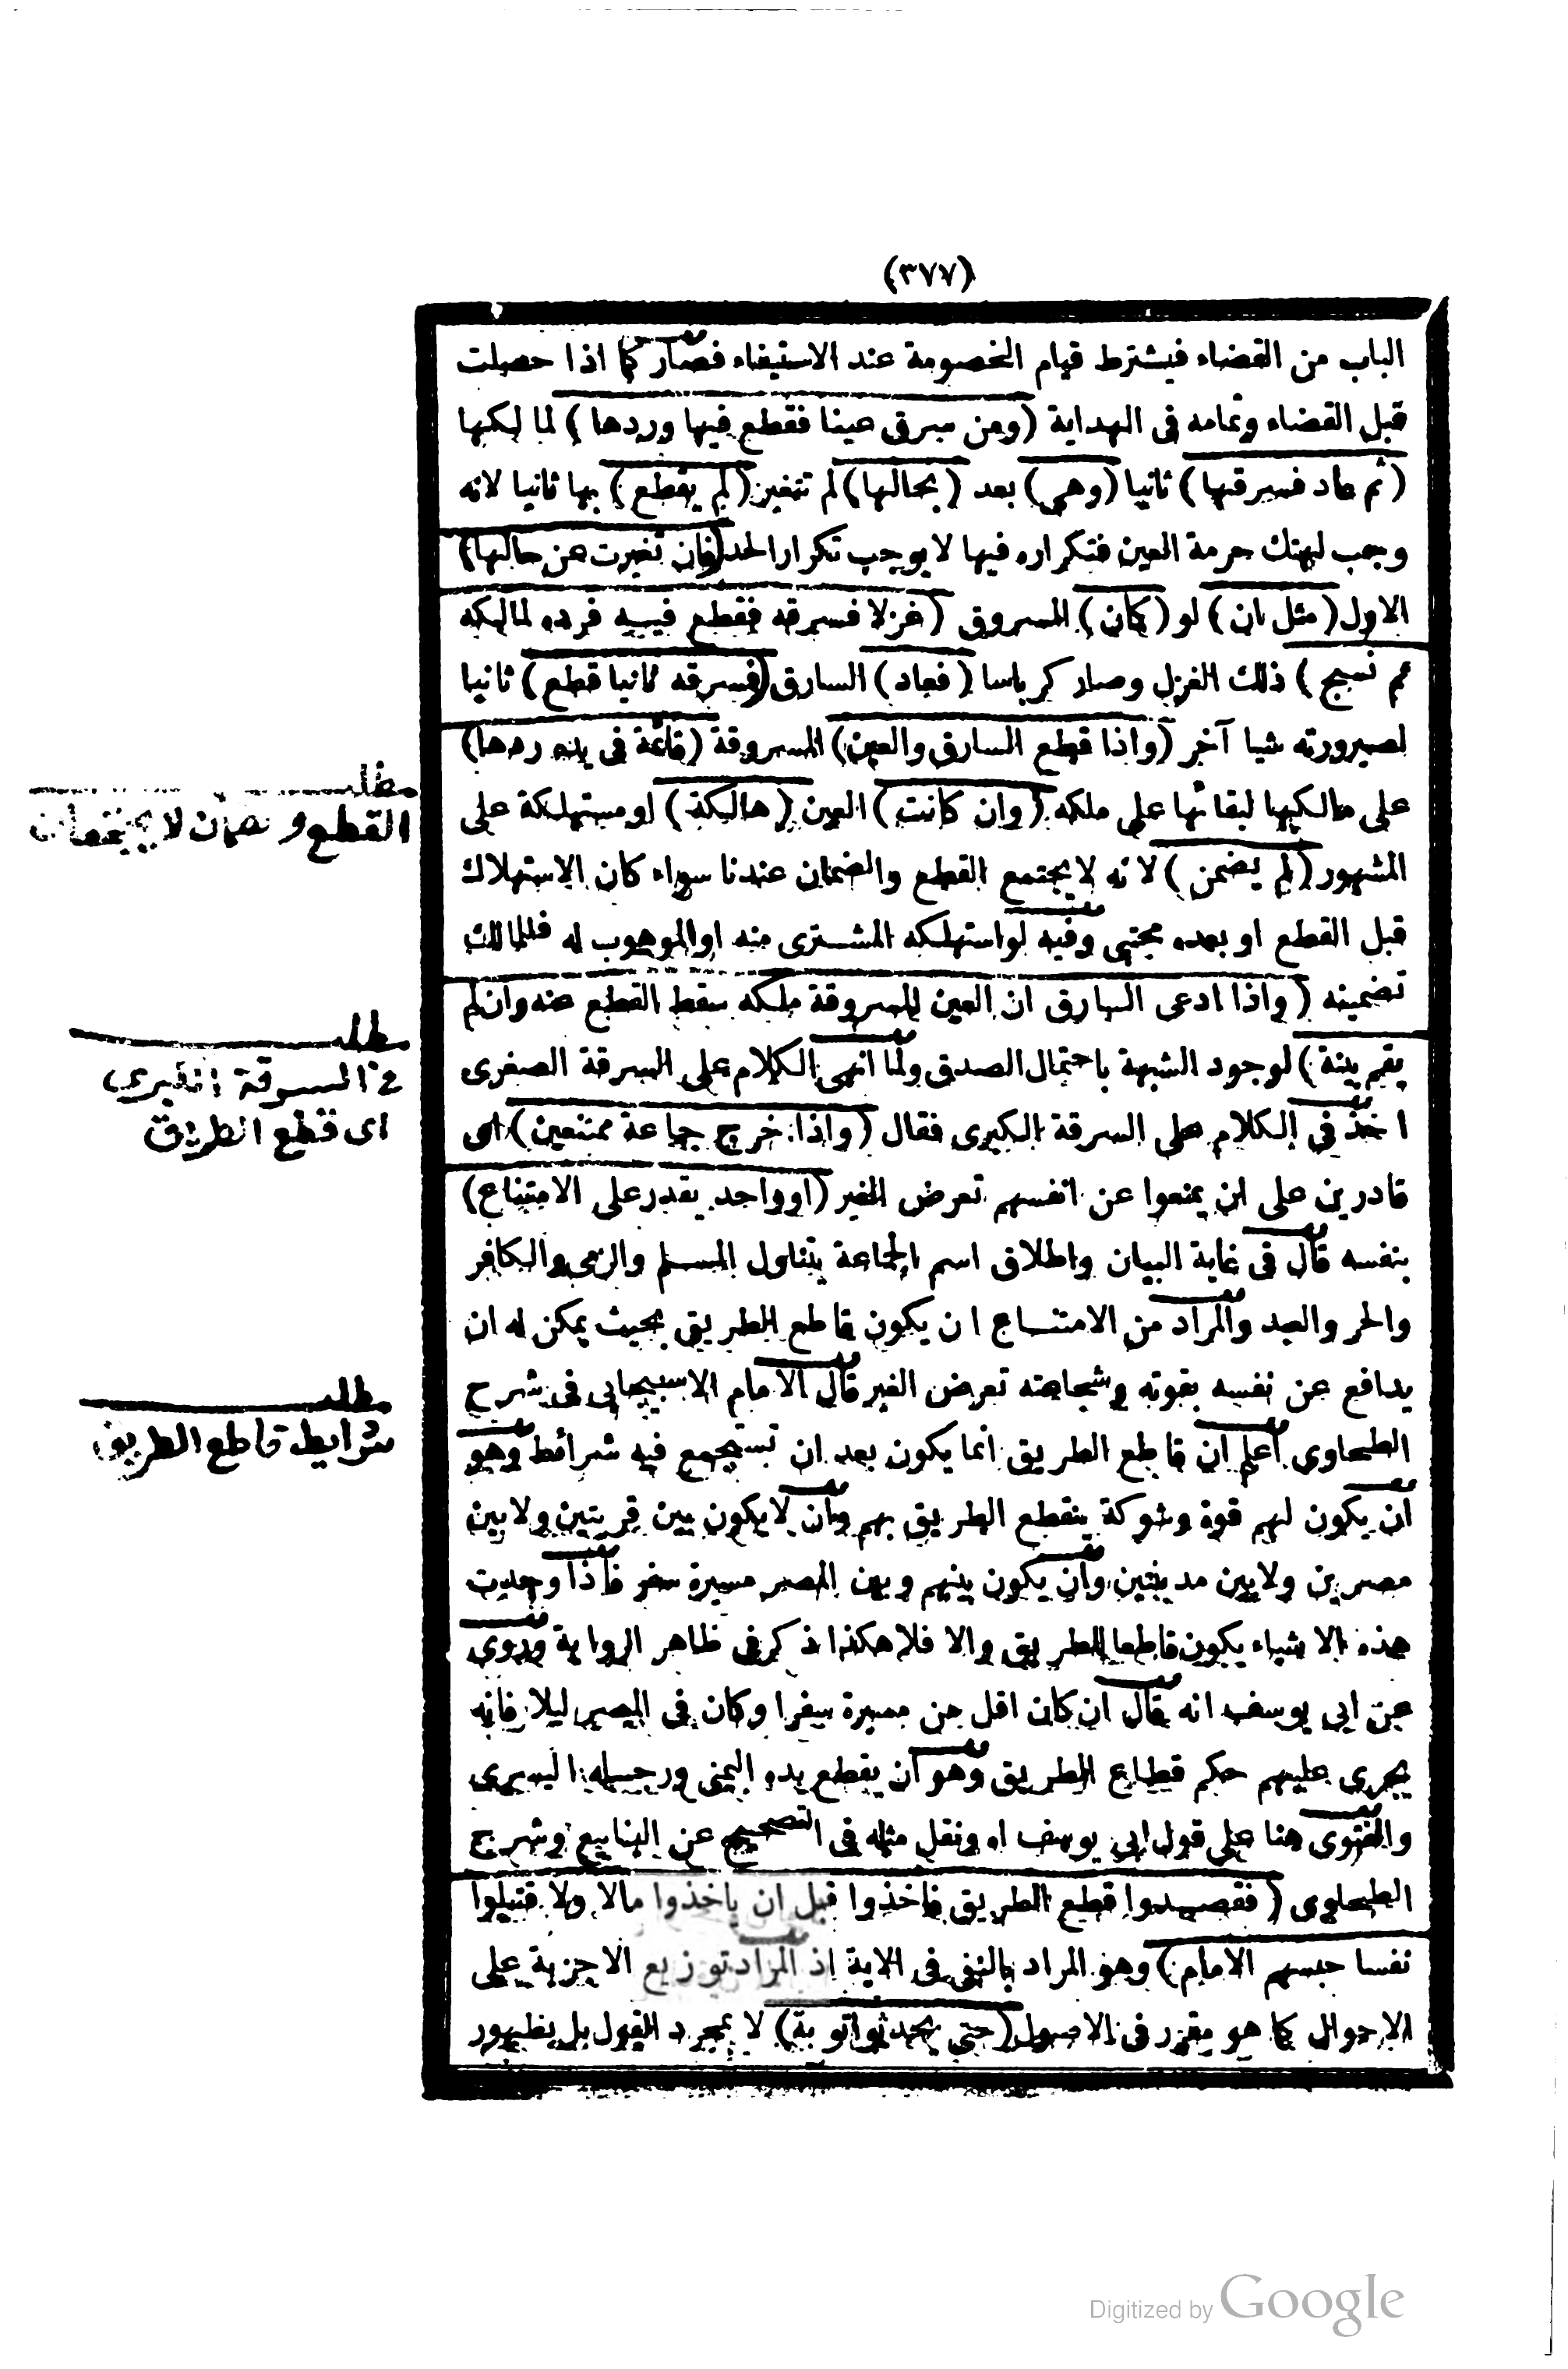 (٣٧٧)
الباب من القضاء فيشترط قيام الخصومة عند الاستيفاء فصار كما اذا حصلت
قبل القضاء وتمامه فى الهداية (ومن سرق عينا فقطع فيها وردها) لمالكها
(ثم عاد فسرقها) ثانيا (وهى) بعد (بحالها) لم تتغير (لم يقطع) بها ثانيا لانه
وجب لهتك حرمة العين فتكراره فيها لا يوجب تكرار الحد (فان تغيرت عن حالها)
الاول (مثل ان) لو (كان) المسروق (غزلا فسرقه فقطع فيه فرده لمالكه
ثم نسج) ذلك الغزل وصار كرباسا (فعاد) السارق (فسرقه ثانيا قطع) ثانيا
لصيرورته شيا آخر (واذا قطع السارق والعين) المسروقة (قائمة فى يده ردها)
على مالكها لبقائها على ملكه (وان كانت) العين (هالكة) او مستهلكة على
المشهور (لم يضمن) لانه لا يجتمع القطع والضمان عندنا سواء كان الاستهلاك
قبل القطع او بعده مجتبى وفيه لو استهلكه المشترى منه او الموهوب له فللمالك
تضمينه (واذا ادعى السارق ان العين المسروقة ملكه سقط القطع عنه وان لم
يقم بينة) لوجود الشبهة باحتمال الصدق ولما انهى الكلام على السرقة الصغرى
اخذ فى الكلام على السرقة الكبرى فقال (واذا خرج جماعة ممتنعين) اى
قادرين على ان يمنعوا عن انفسهم تعرض الغير (او واحد يقدر على الامتناع)
بنفسه قال فى غاية البيان واطلاق اسم الجماعة يتناول المسلم والذمى والكافر
والحر والعبد والمراد من الامتناع ان يكون قاطع الطريق بحيث يمكن له ان
يدافع عن نفسه بقوته وشجاعته تعرض الغير قال الامام الاسبيجابى فى شرح
الطحاوى اعلم ان قاطع الطريق انما يكون بعد ان تستجمع فيه شرائط وهو
ان يكون لهم قوة وشوكة ينقطع الطريق بهم وان لا يكون بين قريتين ولا بين
مصرين ولا بين مدينتين وان يكون بينهم وبين المصر مسيرة سفر فاذا وجدت
هذه الاشياء يكون قاطعا للطريق والا فلا هكذا ذكر فى ظاهر الرواية وروى
عن ابى يوسف انه قال ان كان اقل من مسيرة سفرا وكان فى المصر ليلا فانه
يجرى عليهم حكم قطاع الطريق وهو ان يقطع يده اليمنى ورجله اليسرى
والفتوى هنا على قول ابى يوسف اه ونقل مثله فى التصحيح عن الينابيع وشرح
الطحاوى (فقصدوا قطع الطريق فاخذوا قبل ان ياخذوا مالا ولا قتلوا
نفسا حبسهم الامام) وهو المراد بالنفى فى الاية اذ المراد توزيع الاجزية على
الاحوال كما هو مقرر فى الاصول (حتى يحدثوا توبة) لا بمجرد القول بل بظهور
مطلب
القطع وضمان لا يجتمعان
مطلب
فى السرقة الكبرى
اى قطع الطريق
مطلب
شرايط قاطع الطريق
Digitized by Google